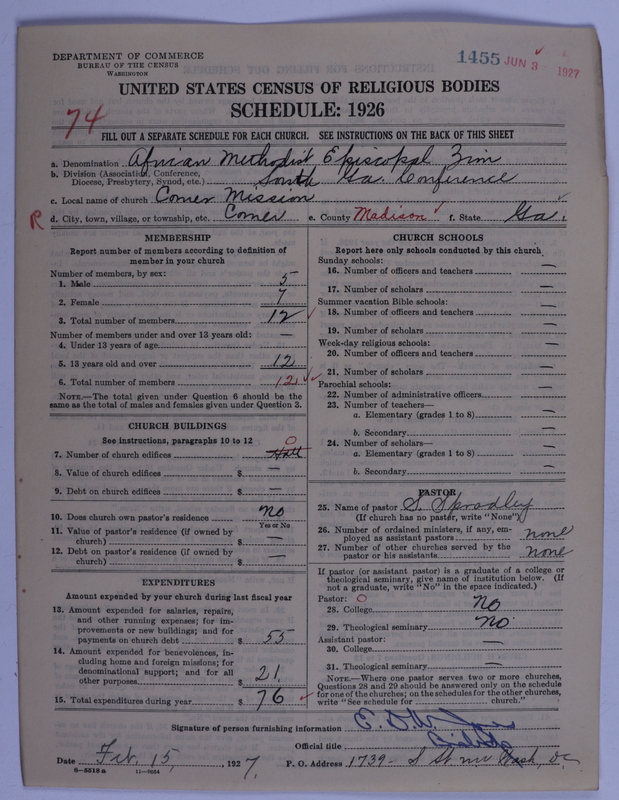 DEPARTMENT OF COMMERCE
BUREAU OF THE CENSUS
WASHINGTON
1455 JUN 3 1927
UNITED STATES CENSUS OF RELIGIOUS BODIES
SCHEDULE: 1926
74
FILL OUT A SEPARATE SCHEDULE FOR EACH CHURCH. SEE INSTRUCTIONS ON THE BACK OF THIS SHEET
a. Denomination African Methodist Episcopal Zion
b. Division (Association, Conference,
Diocese, Presbytery, Synod, etc.) South Ga. Conference
c. Local name of church Comer Mission
R d. City, town, village, or township, etc. Comer e. County Madison f. State Ga
MEMBERSHIP
Report number of members according to definition of
member in your church
Number of members, by sex:
1. Male 5
2. Female 7
3. Total number of members 12
Number of members under and over 13 years old:
4. Under 13 years of age —
5. 13 years old and over 12
6. Total number of members 12
NOTE.—The total given under Question 6 should be
same as the total of males and females given under Question 3.
CHURCH BUILDINGS
See instructions, paragraphs 10 to 12 0
7. Number of church edifices Hall
8. Value of church edifices $ —
9. Debt on church edifices $ —
10. Does church own pastor's residence No
Yes or No
11. Value of pastor's residence (if owned by
church) $ —
12. Debt on pastor's residence (if owned by
church) $ —
EXPENDITURES
Amount expended by your church during last fiscal year
13. Amount expended for salaries, repairs,
and other running expenses; for im-
provements or new buildings; and for
payments on church debt $ 55
14. Amount expended for benevolences, in-
cluding home and foreign missions; for
denominational support; and for all
other purposes $ 21
15. Total expenditures during year $ 76
CHURCH SCHOOLS
Report here only schools conducted by this church
Sunday schools:
16. Number of officers and teachers —
17. Number of scholars —
Summer vacation Bible schools:
18. Number of officers and teachers —
19. Number of scholars —
Week-day religious schools:
20. Number of officers and teachers —
21. Number of scholars —
Parochial schools:
22. Number of administrative officers —
23. Number of teachers—
a. Elementary (grades 1 to 8) —
b. Secondary —
24. Number of scholars—
a. Elementary (grades 1 to 8) —
b. Secondary —
PASTOR
25. Name of pastor S. Spradley
(If church has no pastor, write "None")
26. Number of ordained ministers, if any, em-
ployed as assistant pastors none
27. Number of other churches served by the
pastor or his assistants none
If pastor (or assistant pastor) is a graduate of a college or
theological seminary, give name of institution below. (If
not a graduate, write "No" in the space indicated.)
Pastor: 0
28. College No
29. Theological seminary No
Assistant pastor:
30. College —
31. Theological seminary —
NOTE.—Where one pastor serves two or more churches,
Questions 28 and 29 should be answered only on the schedule
for one of the churches; on the schedules for the other churches,
write "See schedule for church."
Signature of person furnishing information E. D. W. Jones
Official title Bishop
Date Feb. 15, 1927. P. O. Address 1739- S St. nw Wash, DC
8—5518 a 11—9034